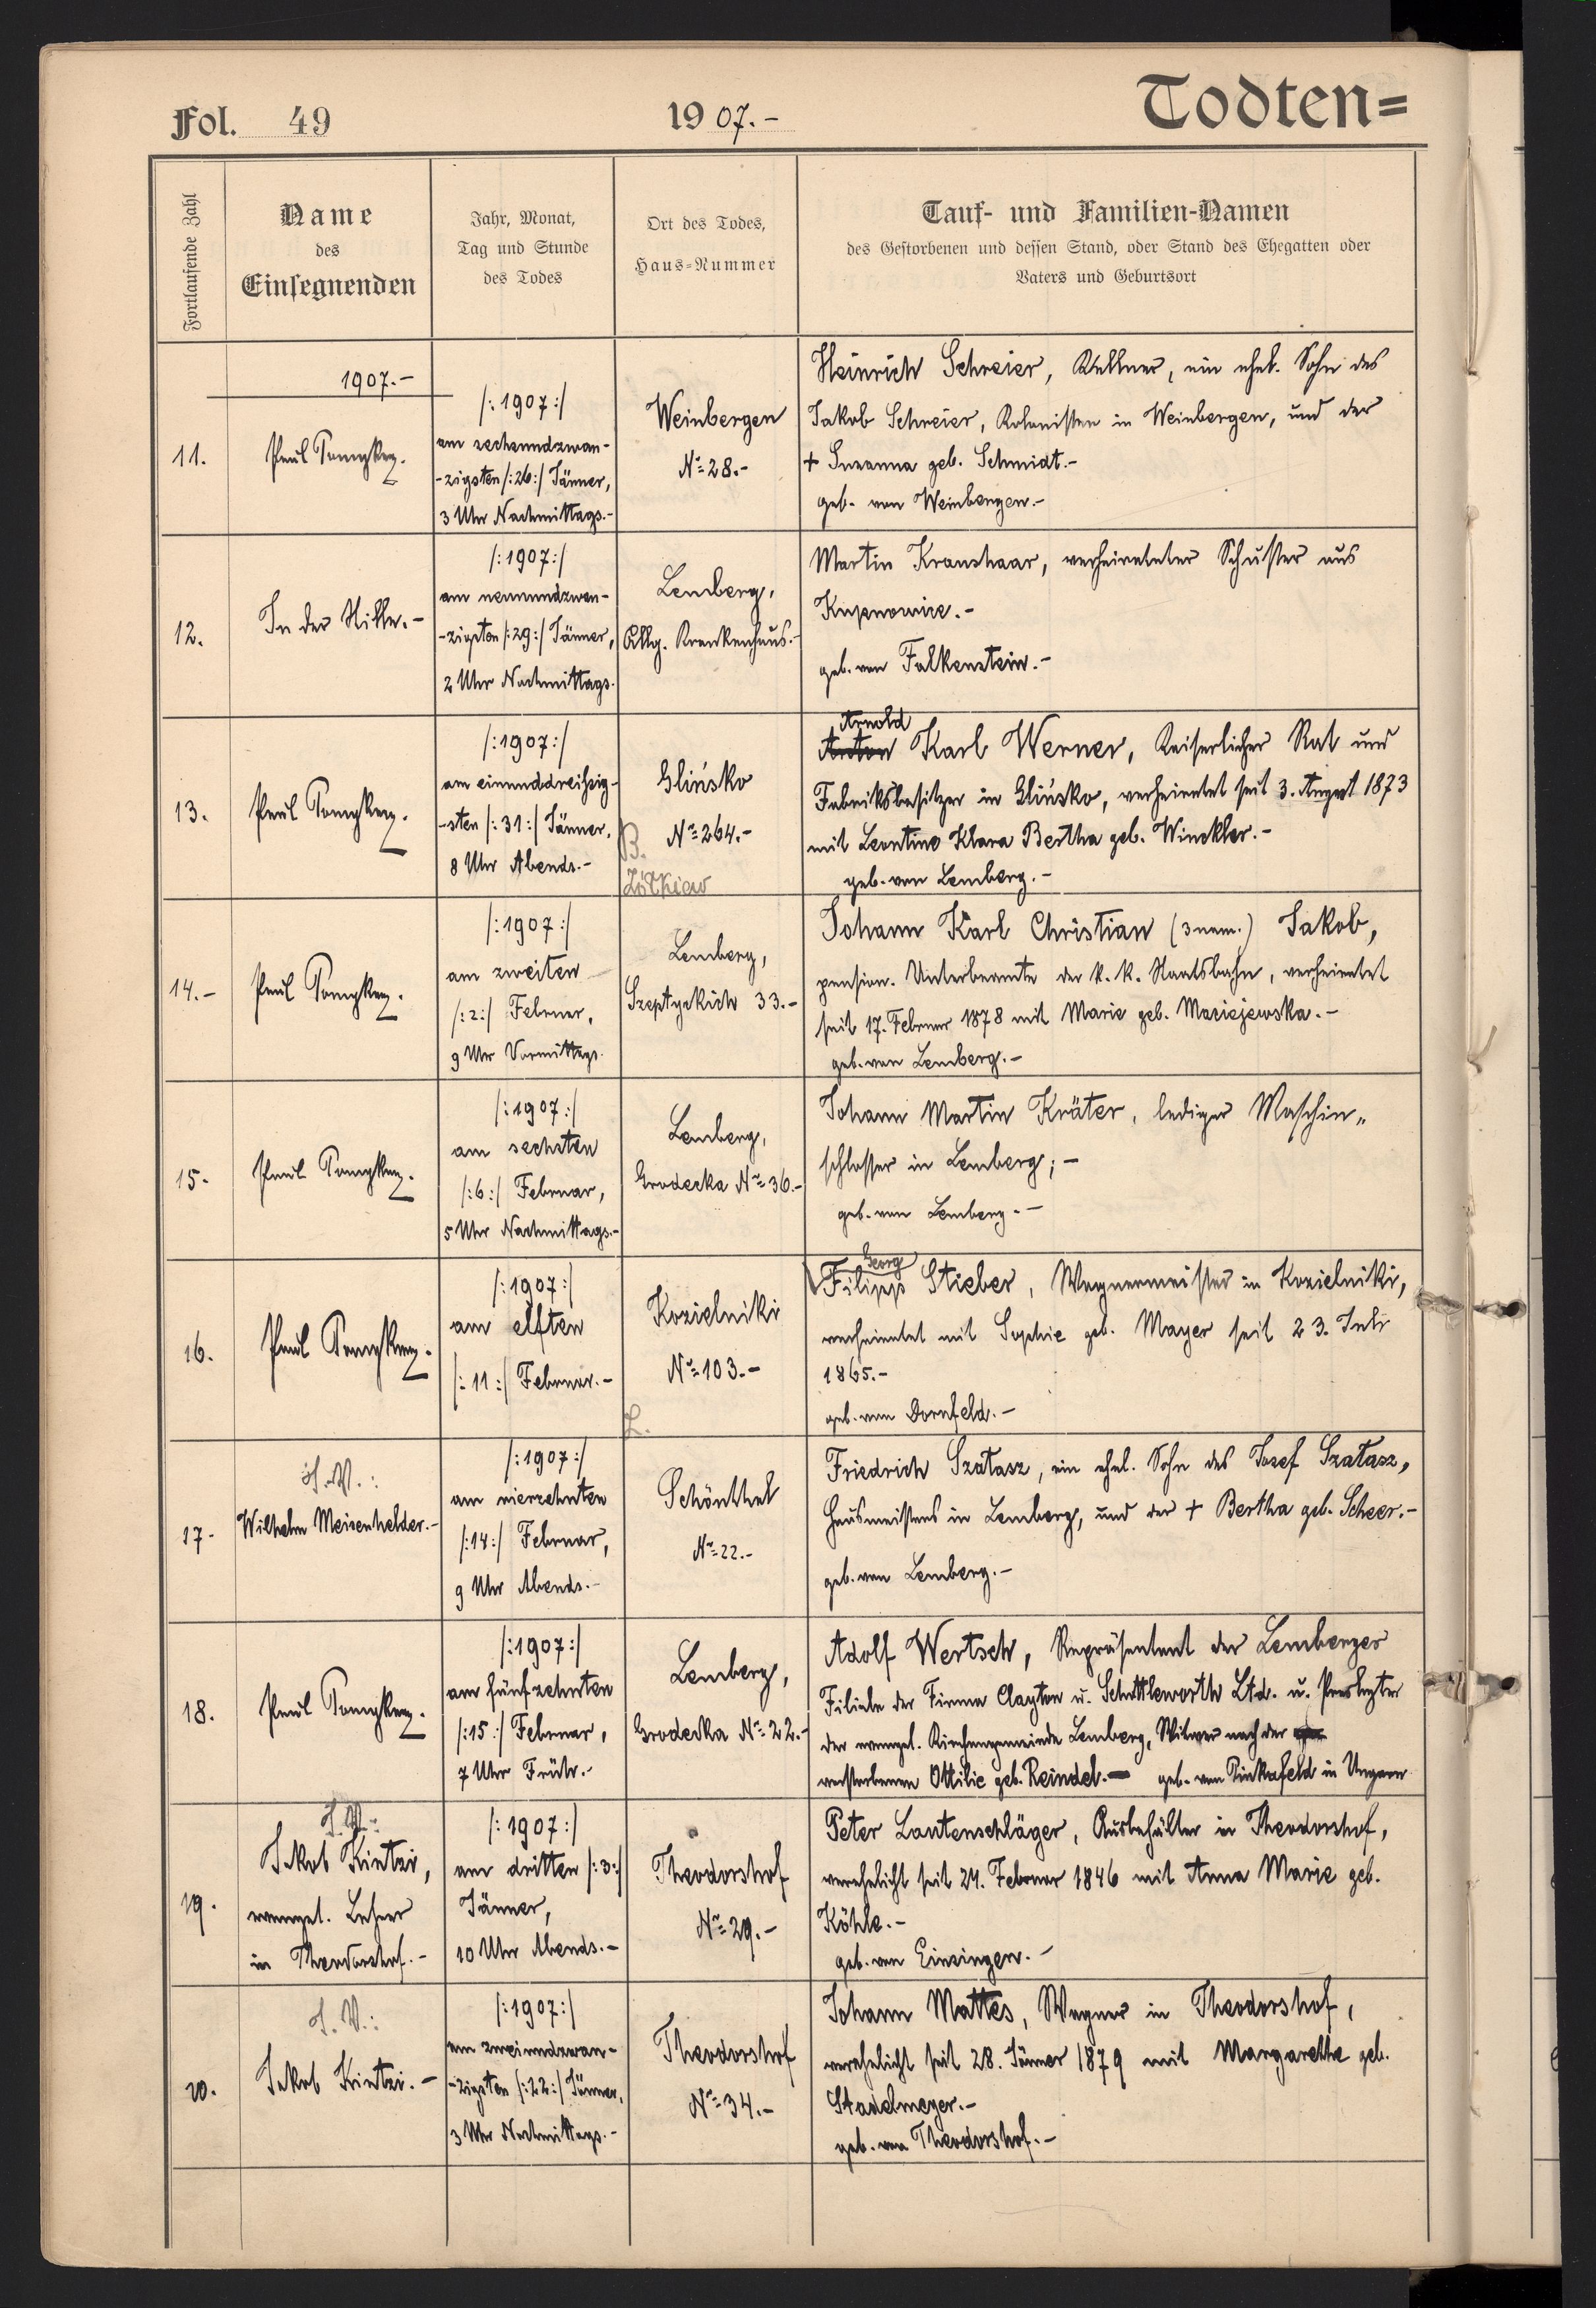 Fol. 49
1907.-
Todten=
Fortlaufende Zahl
Name
des
Einsegnenden
Jahr, Monat,
Tag und Stunde
des Todes
Ort des Todes,
Haus-Nummer
Tauf- und Familien-Namen
des Gestorbenen und dessen Stand, oder Stand des Ehegatten oder
Vaters und Geburtsort
1907.-
11.
Paul
/:1907:/
am sechsundzwan-
-zigsten /:26:/ Jänner,
3 Uhr Nachmittags.-
Weinbergen
No=28.-
Heinrich Schreier, Kellner, ein ehel. Sohn des
Jakob Schreier, Kolonisten in Weinbergen, und der
+ Susanna geb. Schmidt.-
geb. von Weinbergen.-
12.
In der Stille.-
/:1907:/
am neunundzwan-
-zigsten /:29:/ Jänner,
2 Uhr Nachmittags.
Lemberg,
Allg. Krankenhaus.-
Martin Kranshaar, verheirateter Schuster aus
Kupnowice.-
geb. von Falkenstein.-
13.
Paul
/:1907:/
am einunddreißig-
-sten /:31:/ Jänner,
8 Uhr Abends.-
Glińsko
No=264.-
B.
Żółkiew
Arnold
Anton Karl Werner, Kaiserlicher Rat und
Fabriksbesitzer in Glińsko, verheiratet seit 3. August 1873
mit Leontine Klara Bertha geb. Winckler.-
geb. von Lemberg.-
14.-
Paul
/:1907:/
am zweiten
/:2:/ Februar,
9 Uhr Vormittags.
Lemberg,
Szeptyckich 33.-
Johann Karl Christian (3nam.) Jakob,
pension. Unterbeamte der k. k. Staatsbahn, verheiratet
seit 17. Februar 1878 mit Marie geb. Maciejewska.-
geb. von Lemberg.-
15.
Paul
/:1907:/
am sechsten
/:6:/ Februar,
5 Uhr Nachmittags.-
Lemberg,
Grodecka No=36.-
Johann Martin Kräter, lediger Maschin„
schlosser in Lemberg;-
geb. von Lemberg.-
16.
Paul
/:1907:/
am elften
/:11:/ Februar.-
Kozielniki
No=103.-
L.
Georg
Filipp Stieber, Wagnermeister in Kozielniki,
verheiratet mit Sophie geb. Mayer seit 23. Juli
1865.-
geb. von Dornfeld.-
17.
I.V.:
Wilhelm Meisenhelder.-
/:1907:/
am vierzehnten
/:14:/ Februar,
9 Uhr Abends.-
Schönthal
No=22.-
Friedrich Szatasz, ein ehel. Sohn des Josef Szatasz,
Hausmeisters in Lemberg, und der + Bertha geb. Scheer.-
geb. von Lemberg.-
18.
Paul
/:1907:/
am fünfzehnten
/:15:/ Februar,
7 Uhr Früh.-
Lemberg,
Grodecka No=22.-
Adolf Wertsch, Repräsentant der Lemberger
Filiale der Firma Clayton u. Schuttleworth Ltd. u. Presbyter
der evangel. Kirchengemeinde Lemberg, Witwer nach der
verstorbenen Ottilie geb. Reindel.- geb. von Pinkafeld in Ungarn
19.
I.V.:
Jakob Kintzi,
evangel. Lehrer
in Theodorshof.-
/:1907:/
am dritten /:3:/
Jänner,
10 Uhr Abends.-
Theodorshof
No=29.-
Peter Lautenschläger, Ausbehälter in Theodorshof,
verehelicht seit 24. Februar 1846 mit Anna Marie geb.
Köhle.-
geb. von Einsingen.-
20.
I.V.:
Jakob Kintzi.-
/:1907:/
am zweiundzwan-
-zigsten /:22:/ Jänner,
3 Uhr Nachmittags.-
Theodorshof
No=34.-
Johann Mattes, Wagner in Theodorshof,
verehelicht seit 28. Jänner 1879 mit Margarethe geb.
Stadelmeyer.-
geb. von Theodorshof.-